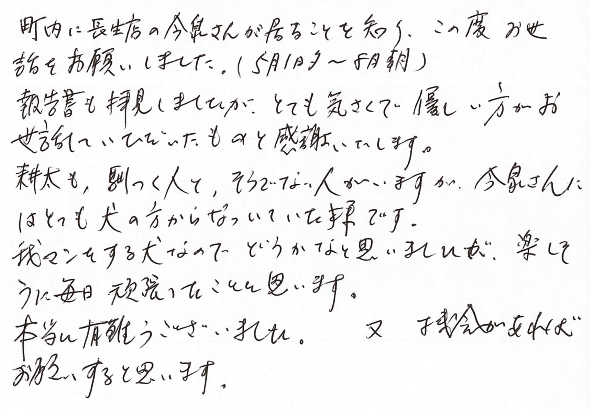 町内に長生店の今泉さんが居ることを知り、この度お世
話をお願いしました。(5月1日夕〜8月朝)
報告書も拝見しましたが、とても気さくで優しい方がお
世話していただいたものと感謝いたします。
耕太も、馴つく人と、そうでない人がいますが、今泉さんに
はとても犬の方からなついていた様です。
我マンをする犬なのでどうかなと思いましたが、楽しそ
うに毎日頑張ったことと思います。
本当に有難うございました。 又 機会があれば
お願いすると思います。